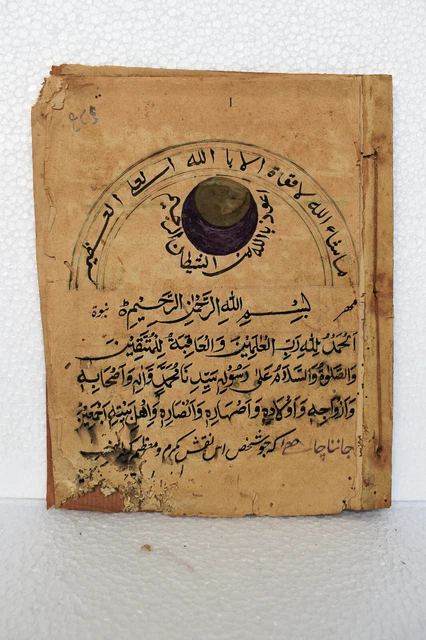 ١
ماشاء الله لا قوة الا با الله العلى العظيم
اعوذ باالله من الشيطان الرجيم
مهر بِسْمِ اللهِ الرَّحْمٰنِ الرَّحِيْمِ نبوة
اَلْحَمْدُ لِلّٰهِ رَبِّ الْعٰلَمِيْنَ وَالْعَاقِبَةُ لِلْمُتَّقِيْنَ
وَالصَّلٰوةُ وَالسَّلَامُ عَلٰى رَسُوْلِهٖ سَيِّدِنَا مُحَمَّدٍ وَّاٰلِهٖ وَاَصْحَابِهٖ
وَاَزْوَاجِهٖ وَاَوْلَادِهٖ وَاَصْهَارِهٖ وَاَنْصَارِهٖ وَاَهْلِ بَيْتِهٖ اَجْمَعِيْنَ
جاننا چاہئے کہ جو شخص اس نقش مکرم و معظم کو